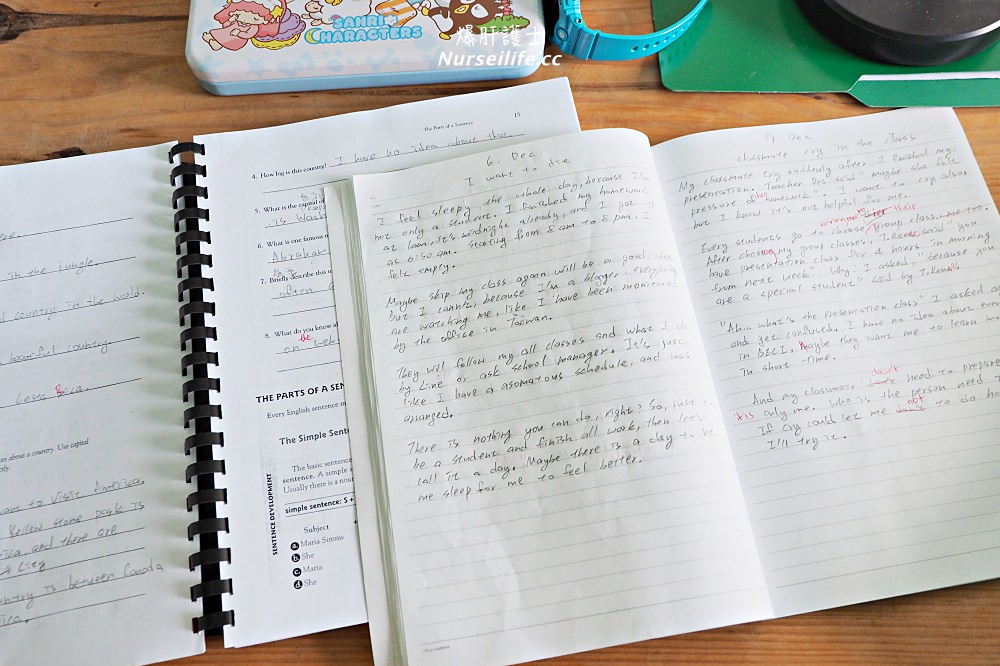 SANRIO
CHARACTERS
爆肝護士
Nurseilife.cc
in the jungle.
country in the world.
country.
Costa Rica.
about a country. Use capital
to visit America.
Yellow stone park is
and there are
city
is between Canada
The Parts of a Sentence 15
4. How big is this country? I have no idea about this.
5. What is the capital of
is Wash
6. What is one famous
Abraha
7. Briefly describe this
often
8. What do you know a
the
on
THE PARTS OF A SEN
Every English sentence
The Simple Sent
The basic sentence
sentence. A simple
Usually there is a
simple sentence: S +
SENTENCE DEVELOPMENT
Subject
a Maria Simms
b She
c Maria
d She
6. Dec
I want to die
I feel sleepy the whole day, because I'm
not only a student. I finished my homework
at 1am. it's midnight already, and I got
as 6:50 am. Starting from 8 am to 8 pm, I
felt empty.
Maybe skip my class again will be a good idea,
but I cannt, because I'm a blogger, everybody
are watching me, like I have been monitored
by the office in Taiwan.
They will follow my all classes and what I do
by Line or ask school manager. It's just
like I have a asomatous schedule, and was
arranged.
There is nothing you can do, right? So, just
be a student and finish all work, then let's
call it a day. Maybe there is a day to let
me sleep for me to feel better.
7 Dec
classmate cry in the class
My classmate cry suddenly after I finished my
presentation. Teacher Des said "Maybe she felt
pressure of homework". I want to cry also,
but I know it's not helpful for me.
Every students go to choose their group class,
After chosing my group classes, T.Renae said "you
have presentation class for 2 hours in morning
from next week" Why? I asked, "because you
are a special student" said by T.Renae.
"Ah... what's the presentation class" I asked
and get confused. I have no idea about every
in BECI, Maybe they want me to learn more
in short time.
And my classmate doesn't need to prepare
this only me. Who is the person need
If cry could let me not to do ho
I'll try it.